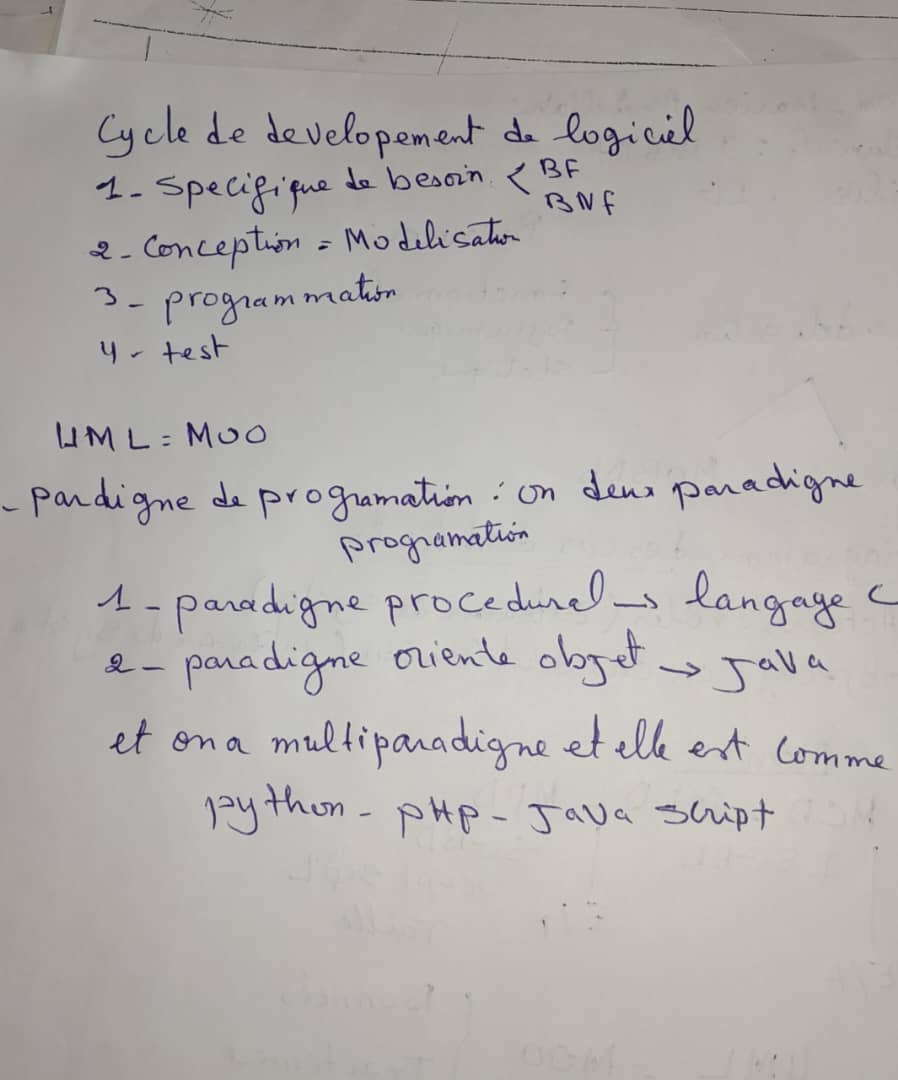 Cycle de developement de logiciel
1- Specifique de besoin < BF
BNF
2- Conception = Modelisation
3- programmation
4- test
UML = MOO
- pardigne de programation : on deux paradigne
programation
1- paradigne procedural → langage C
2- paradigne oriente objet → Java
et on a multiparadigne et elle est comme
python - PHP - Java script